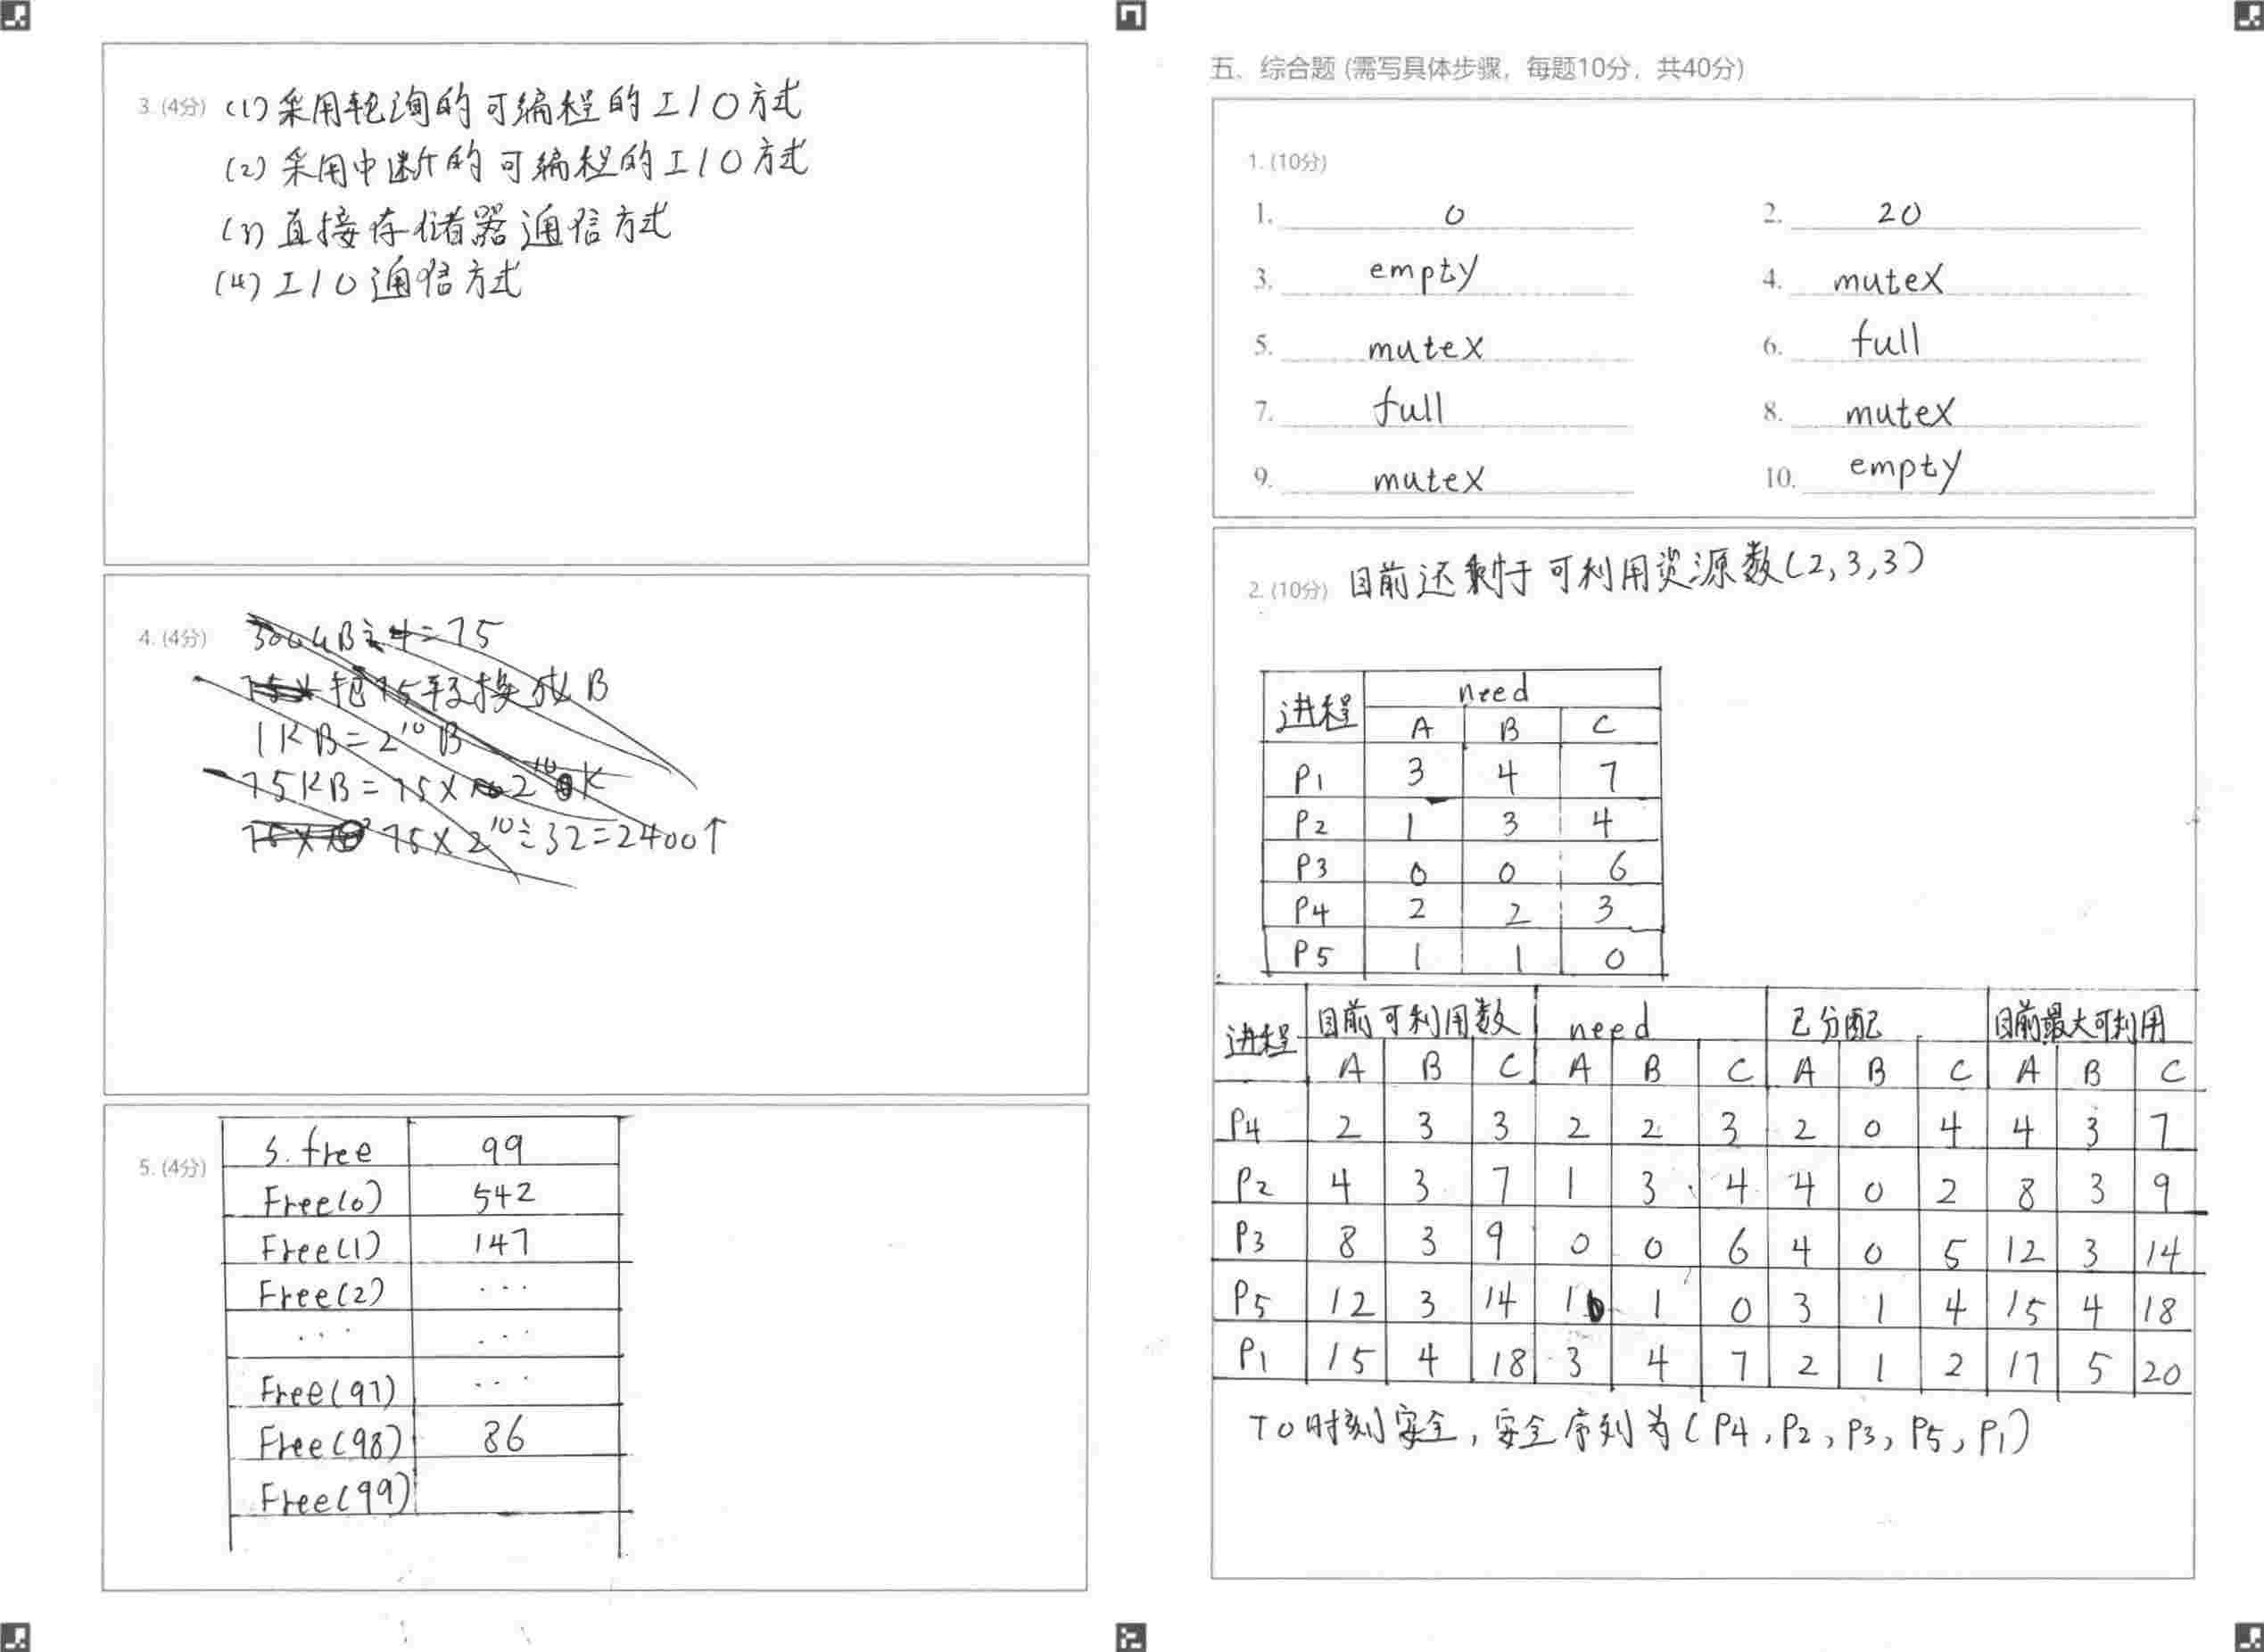 3. (4分) (1) 采用轮询的可编程的I/O方式
(2) 采用中断的可编程的I/O方式
(3) 直接存储器通信方式
(4) I/O通信方式
4. (4分)
把75转换成B
1KB=2^10 B
75KB=75×2^10
75×2^10÷32=2400个
5. (4分)
s.free 99
Free(0) 542
Free(1) 147
Free(2) ...
... ...
Free(97) ...
Free(98) 86
Free(99)
五、综合题 (需写具体步骤，每题10分，共40分)
1. (10分)
1. 0 2. 20
3. empty 4. mutex
5. mutex 6. full
7. full 8. mutex
9. mutex 10. empty
2. (10分) 目前还剩于可利用资源数(2,3,3)
进程 need
A B C
P1 3 4 7
P2 1 3 4
P3 0 0 6
P4 2 2 3
P5 1 1 0
进程 目前可利用数 need 已分配 目前最大可利用
A B C A B C A B C A B C
P4 2 3 3 2 2 3 2 0 4 4 3 7
P2 4 3 7 1 3 4 4 0 2 8 3 9
P3 8 3 9 0 0 6 4 0 5 12 3 14
P5 12 3 14 1 1 0 3 1 4 15 4 18
P1 15 4 18 3 4 7 2 1 2 17 5 20
T0时刻安全, 安全序列为(P4, P2, P3, P5, P1)